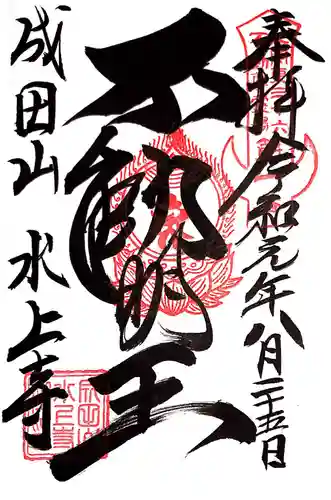 奉拝 令和元年八月二十五日
不動明王
成田山 水上寺